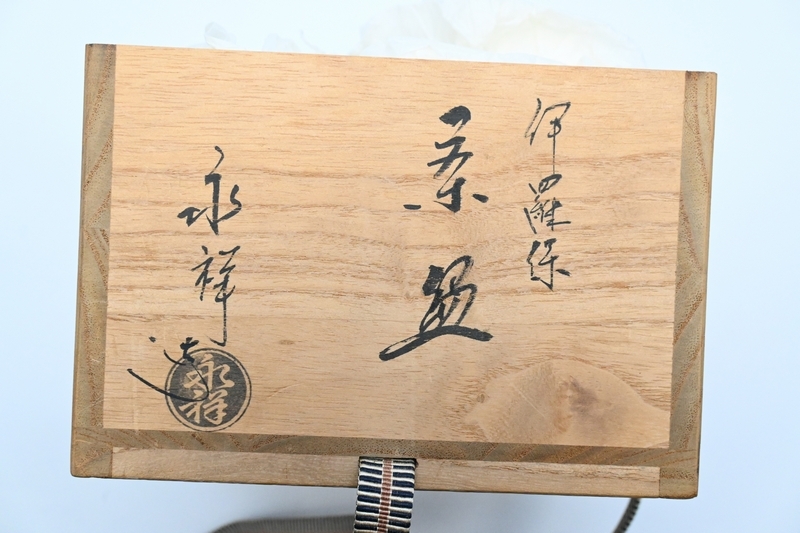 伊羅保
茶盌
永祥
造
永祥